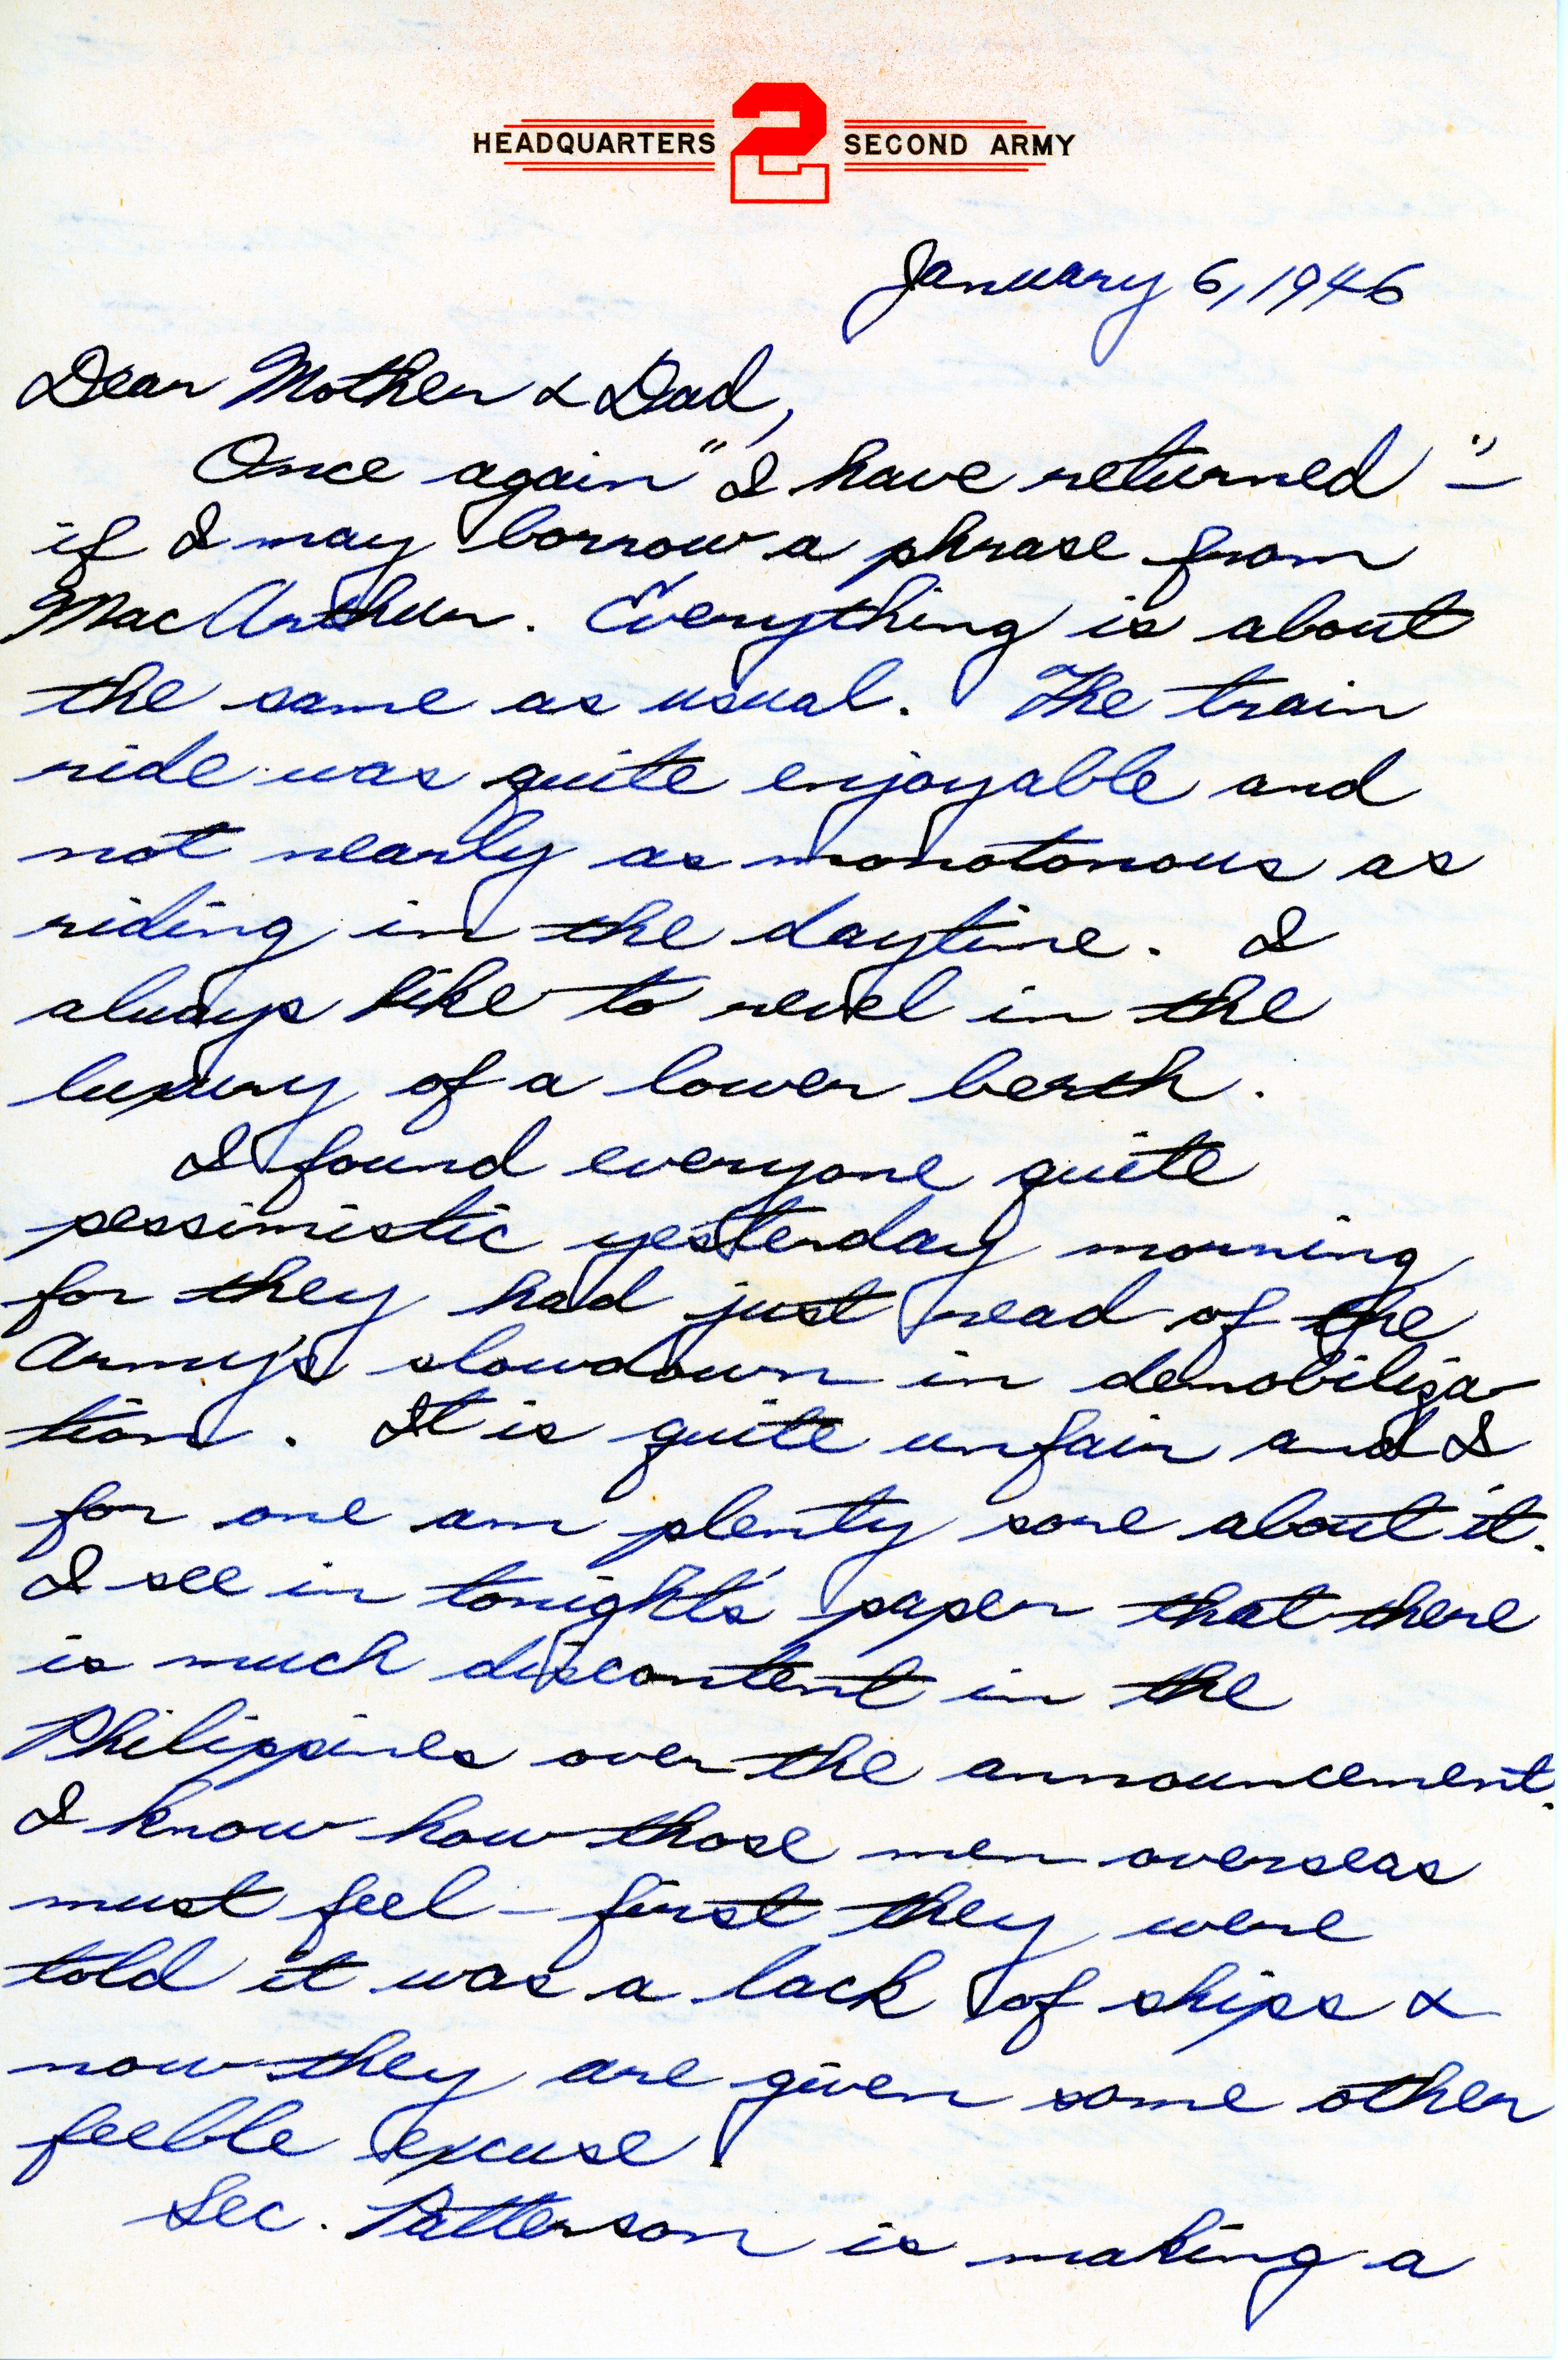 HEADQUARTERS 2 SECOND ARMY
January 6, 1946
Dear Mother & Dad,
Once again "I have returned" –
if I may borrow a phrase from
MacArthur. Everything is about
the same as usual. The train
ride was quite enjoyable and
not nearly as monotonous as
riding in the daytime. I
always like to revel in the
luxury of a lower berth.
I found everyone quite
pessimistic yesterday morning
for they had just read of the
Army's slowdown in demobiliza-
tion. It is quite unfair and I
for one am plenty sore about it.
I see in tonight's paper that there
is much discontent in the
Philippines over the announcement.
I know how those men overseas
must feel – first they were
told it was a lack of ships &
now they are given some other
feeble excuse.
Sec. Patterson is making a